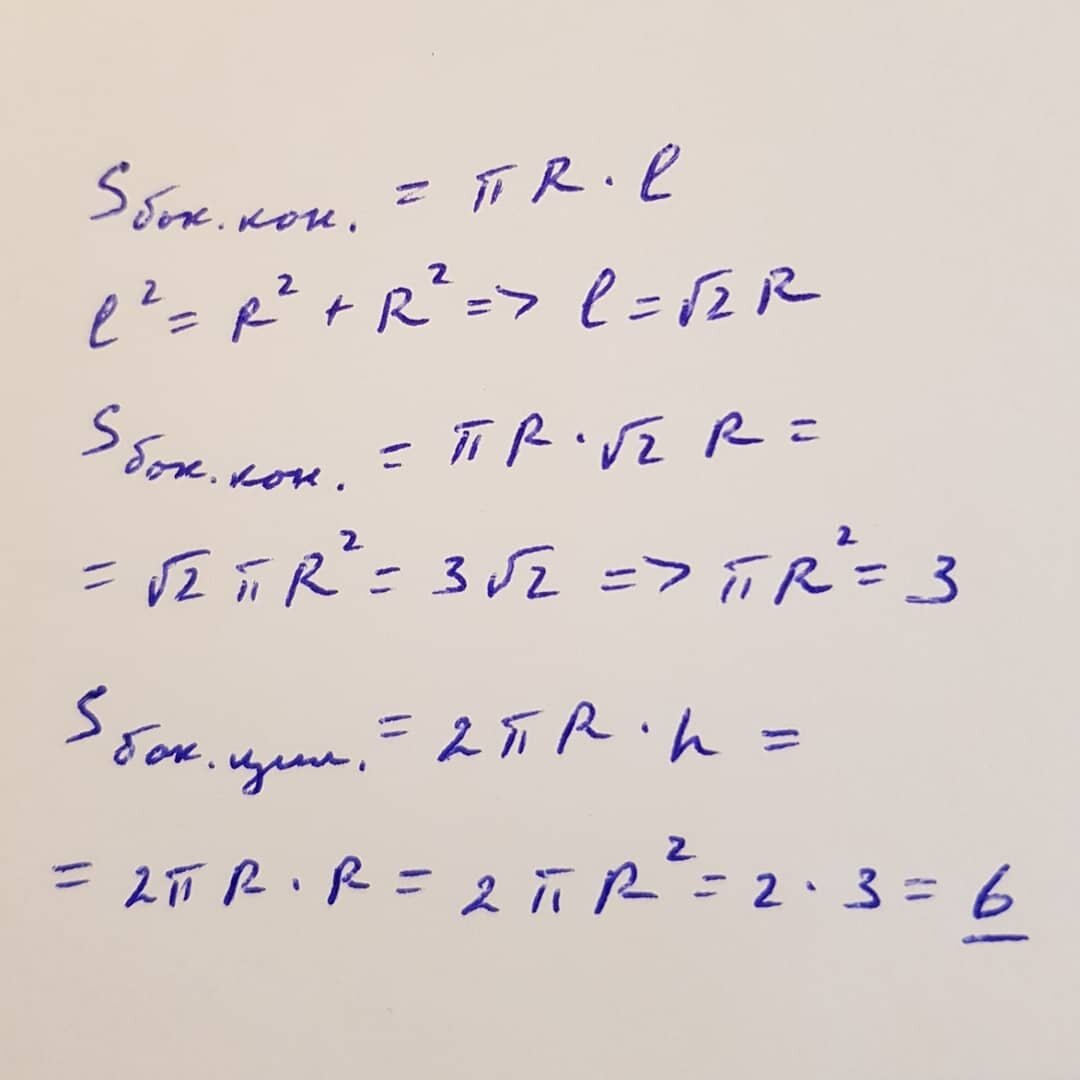 Sбок.кон. = πR · l
l² = R² + R² => l = √2 R
Sбок.кон. = πR · √2 R =
= √2 πR² = 3√2 => πR² = 3
Sбок.цил. = 2πR · h =
= 2πR · R = 2πR² = 2 · 3 = 6